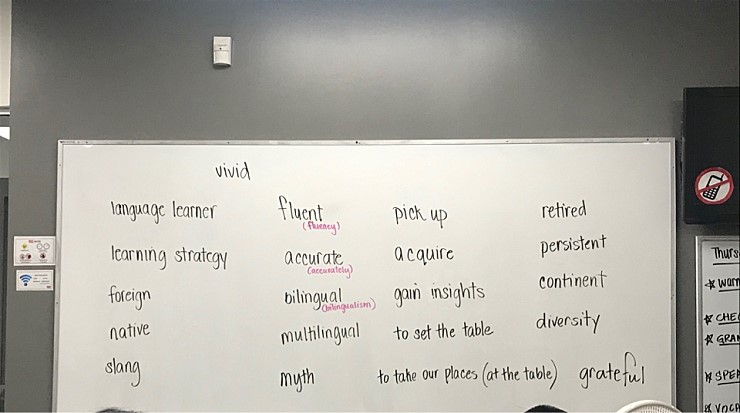 vivid
language learner
learning strategy
foreign
native
slang
fluent
(fluency)
accurate
(accurately)
bilingual
(bilingualism)
multilingual
myth
pick up
acquire
gain insights
to set the table
to take our places (at the table)
retired
persistent
continent
diversity
grateful
Thurs